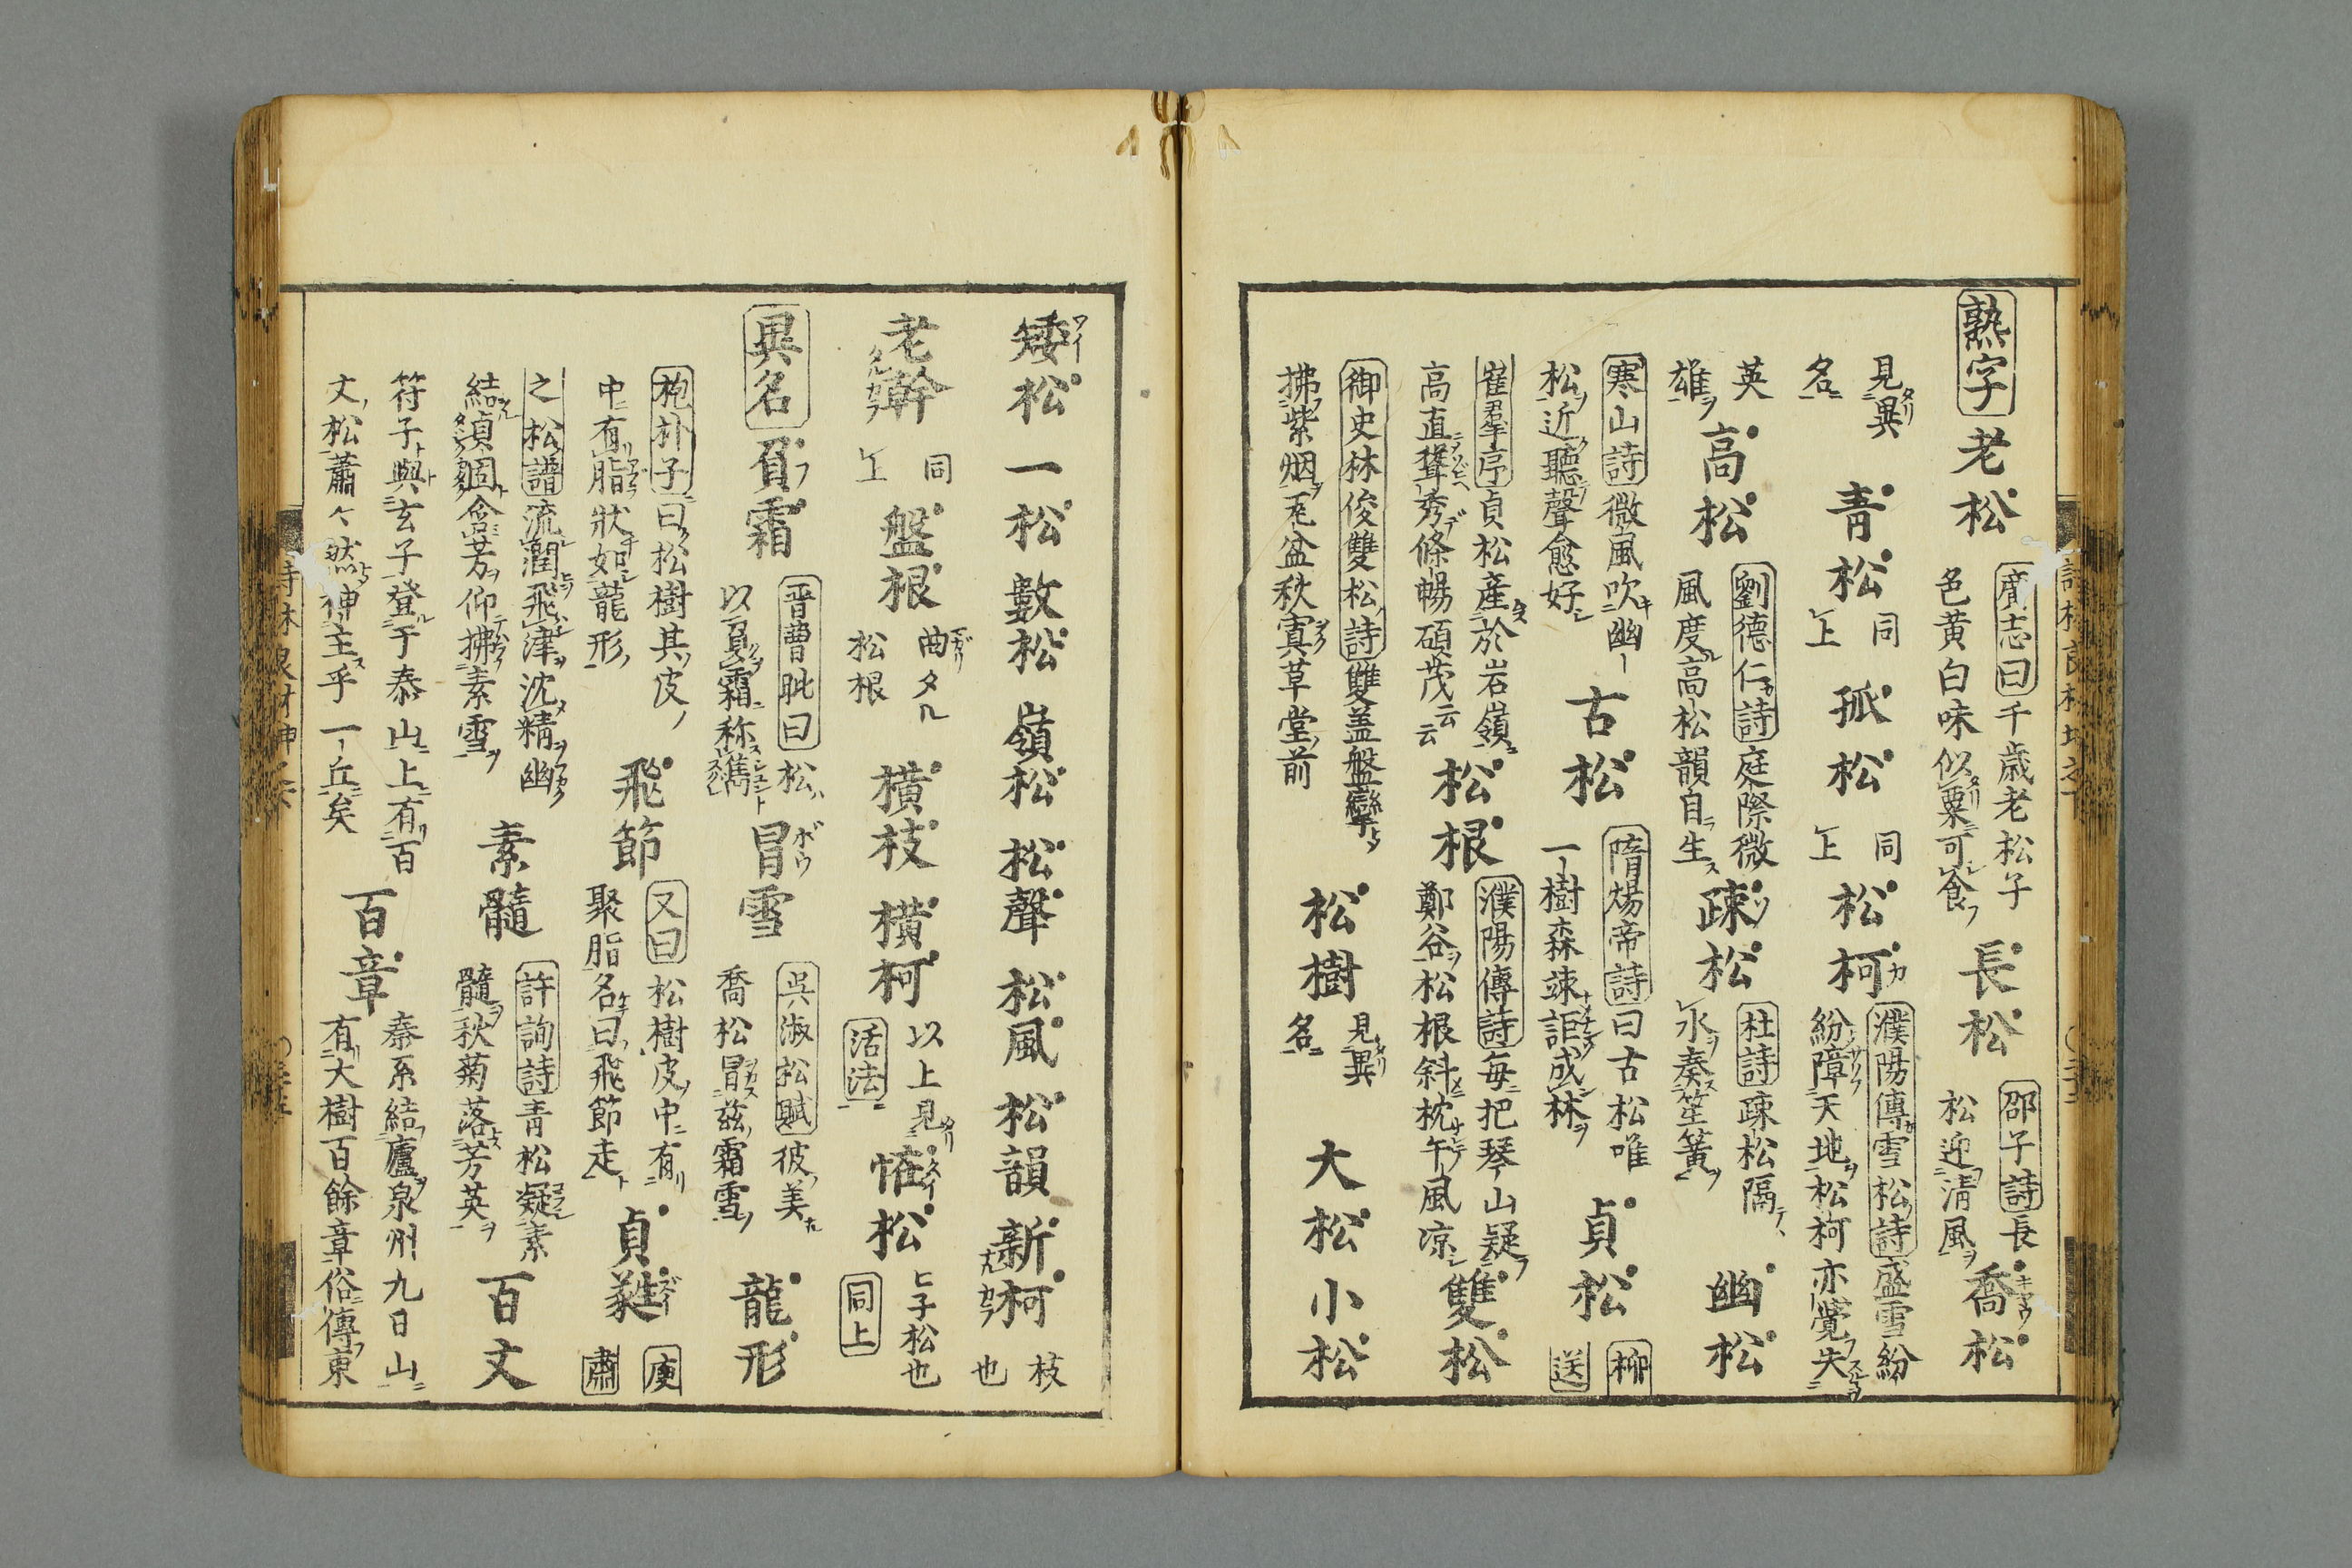 熟字 老松 廣志曰千歳老松子
色黄白味似粟可食 長松 邵子詩長
松迎清風 喬松
見異
名 青松 同
上 孤松 同
上 松柯 濮陽傳雪松詩盛雪紛
紛障天地松柯亦覺失
英
雄 高松 劉德仁詩庭際微
風度高松韻自生 疎松 杜詩疎松隔
水奏笙簧 幽松
寒山詩微風吹幽
松近聽聲愈好 古松 隋煬帝詩曰古松唯
一樹森竦詎成林 貞松 柳
送
崔羣序貞松産於岩嶺
高直聳秀條暢碩茂云云 松根 濮陽傳詩毎把琴山疑
鄭谷松根斜枕午風凉 雙松
御史林俊雙松詩雙盖盤攣
拂紫烟瓦盆秋寘草堂前 松樹 見異
名 大松 小松
矮松 一松 數松 嶺松 松聲 松風 松韻 新柯 枝
也
老幹 同
上 盤根 曲タル
松根 横枝 横柯 以上見
活法 恠松 ヒ子松也
同上
異名 負霜 晋曹毗曰松
以負霜称雋 冒雪 呉淑松賦彼美
喬松冒茲霜雪 龍形
抱朴子曰松樹其皮
中有脂狀如龍形 飛節 又曰松樹皮中有
聚脂名曰飛節走 貞蕤 庾
肅
之松譜流潤飛津沈精幽
結貞固含芳仰拂素雪 素髓 許詢詩青松凝素
髓秋菊落芳英 百丈
符子與玄子登于泰山上有百
丈松蕭々然神主乎一丘矣 百章 秦系結廬泉州九日山
有大樹百餘章俗傳東